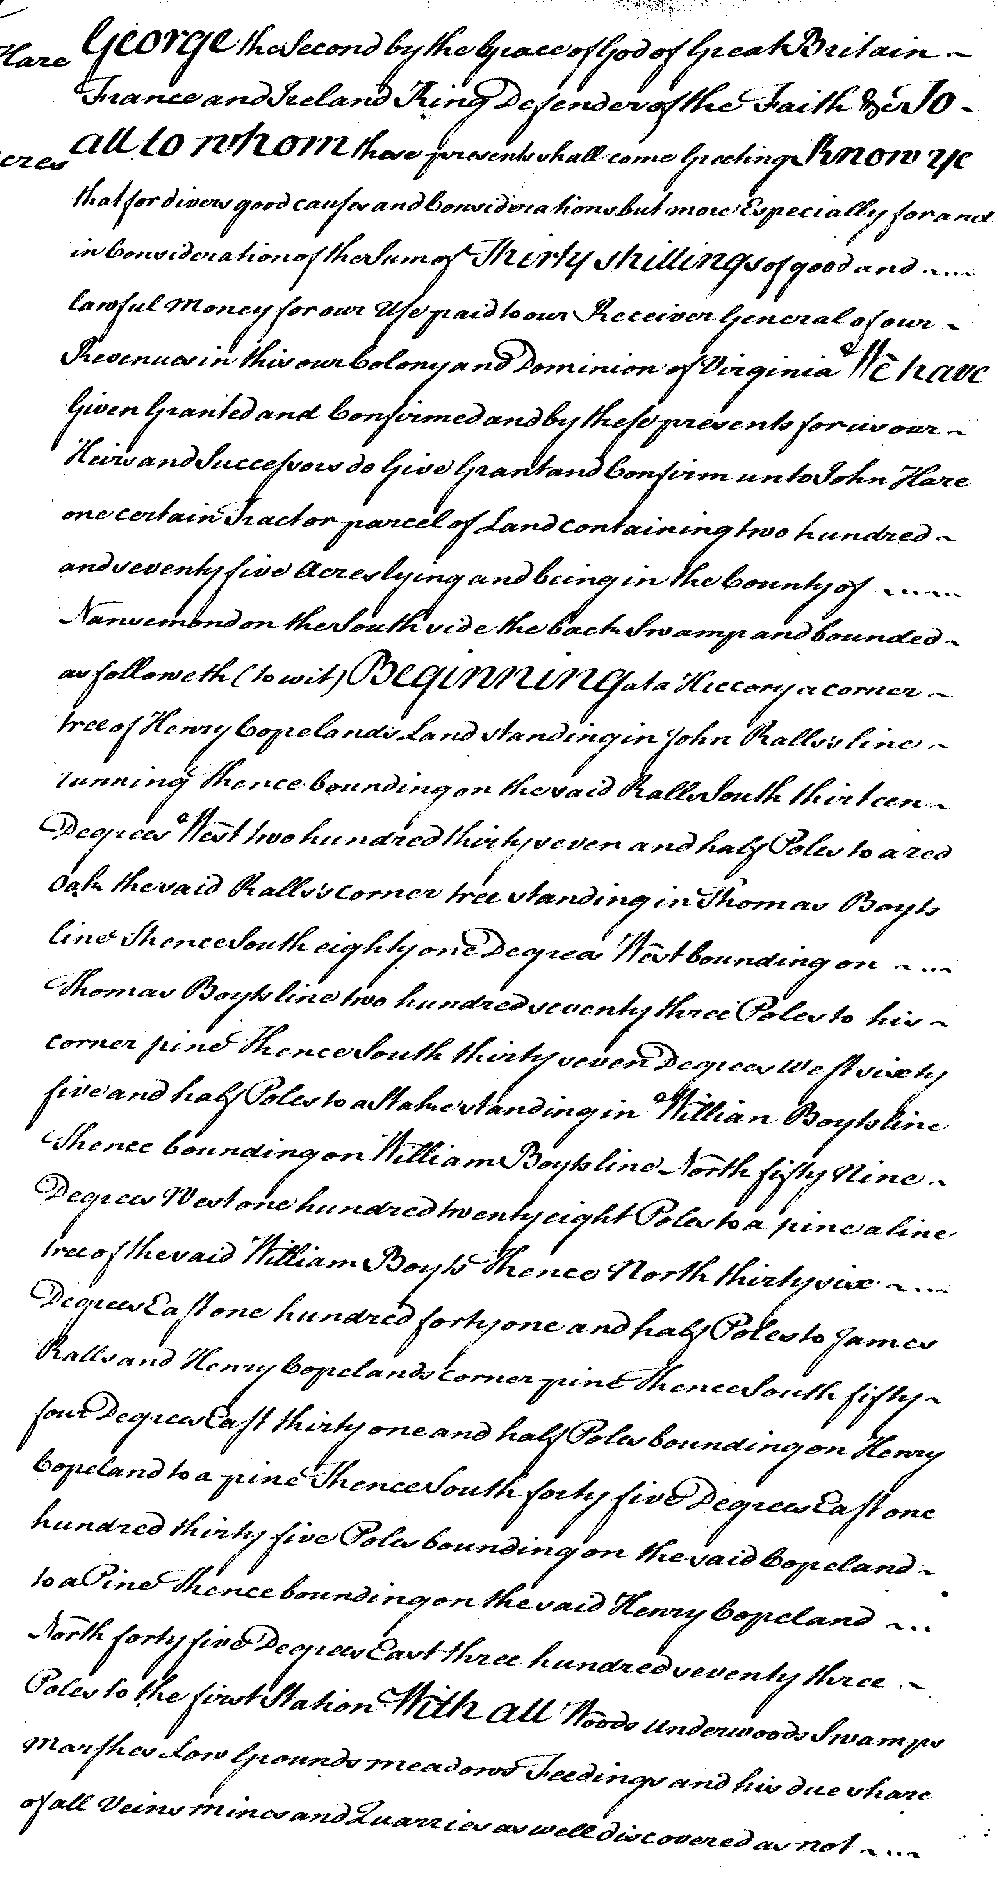 Hare
George the Second by the Grace of God of Great Britain ~
France and Ireland King Defender of the Faith &c To -
acres
all to whom these presents shall come Greeting Know ye
that for divers good causes and Considerations but more Especially for and
in Consideration of the Sum of Thirty shillings of good and ~...~
lawful Money for our Use paid to our Receiver General of our ~
Revenues in this our Colony and Dominion of Virginia We have
Given Granted and Confirmed and by these presents for us our ~
Heirs and Successors do Give Grant and Confirm unto John Hare
one certain Tract or parcel of Land containing two hundred ~
and seventy five Acres lying and being in the County of ~...~
Nansemond on the South side the back Swamp and bounded ~
as followeth (to wit) Beginning at a Hiccory a corner ~
tree of Henry Copelands Land standing in John Ralls's line ~
running thence bounding on the said Ralls South thirteen ~
Degrees West two hundred thirty seven and half Poles to a red
Oak the said Ralls's corner tree standing in Thomas Boyts
line Thence South eighty one Degrees West bounding on ~...~
Thomas Boyts line two hundred seventy three Poles to his ~
corner pine Thence South thirty seven Degrees West sixty
five and half Poles to a Stake standing in Willian Boyts line
Thence bounding on William Boyts line North fifty Nine ~
Degrees West one hundred twenty eight Poles to a pine a line
tree of the said William Boyts Thence North thirty six ~...~
Degrees East one hundred forty one and half Poles to James
Ralls and Henry Copelands corner pine Thence South fifty ~
four Degrees East thirty one and half Poles bounding on Henry
Copeland to a pine Thence South forty five Degrees East one
hundred thirty five Poles bounding on the said Copeland ~
to a Pine thence bounding on the said Henry Copeland ~...
North forty five Degrees East three hundred seventy three ~
Poles to the first Station With all Woods Underwoods Swamps
Marshes Low Grounds meadows Feedings and his due share
of all Veins mines and Quarries as well discovered as not ~...~